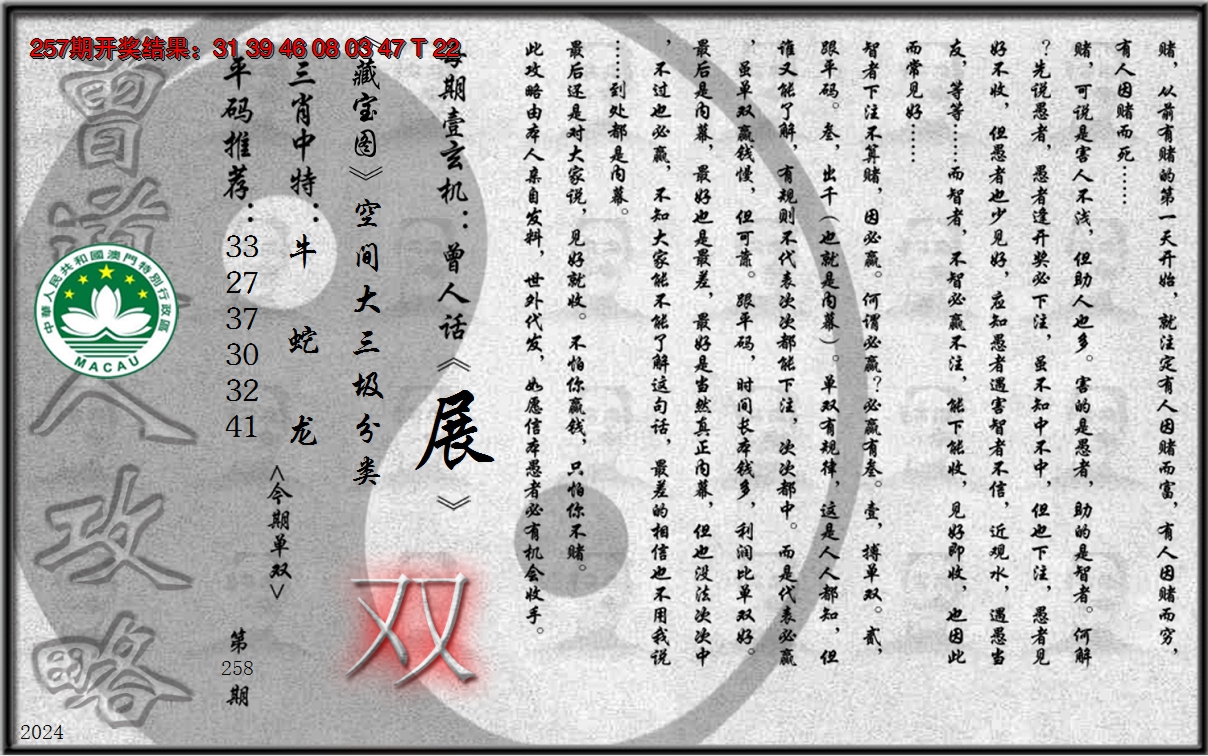 257期开奖结果：31 39 46 08 03 47 T 22
赌，从前有赌的第一天开始，就注定有人因赌而富，有人因赌而穷，
有人因赌而死……
赌，可说是害人不浅，但助人也多。害的是愚者，助的是智者。何解
？先说愚者，愚者逢开奖必下注，虽不知中不中，但也下注，愚者见
好不收，但愚者也少见好，应知愚者遇害智者不信，近观水，遇愚当
友，等等……而智者，不智必赢不注，能下能收，见好即收，也因此
而常见好……
智者下注不算赌，因必赢。何谓必赢？必赢有叁。壹，搏单双。贰，
跟平码。叁，出千（也就是内幕）。单双有规律，这是人人都知，但
谁又能了解，有规则不代表次次都能下注，次次都中。而是代表必赢
，虽单双赢钱慢，但可靠。跟平码，时间长本钱多，利润比单双好。
最后是内幕，最好也是最差，最好是当然真正内幕，但也没法次次中
，不过也必赢，不知大家能不能了解这句话，最差的相信也不用我说
……到处都是内幕。
最后还是对大家说，见好就收。不怕你赢钱，只怕你不赌。
此攻略由本人亲自发料，世外代发，如愿信本愚者必有机会收手。
每期壹玄机：曾人话《展》
《藏宝图》空间大三圾分类
双
三肖中特：牛 蛇 龙
<今期单双>
平码推荐：33 27 37 30 32 41
第258期
曾道人攻略
中華人民共和國澳門特別行政區
MACAU
2024